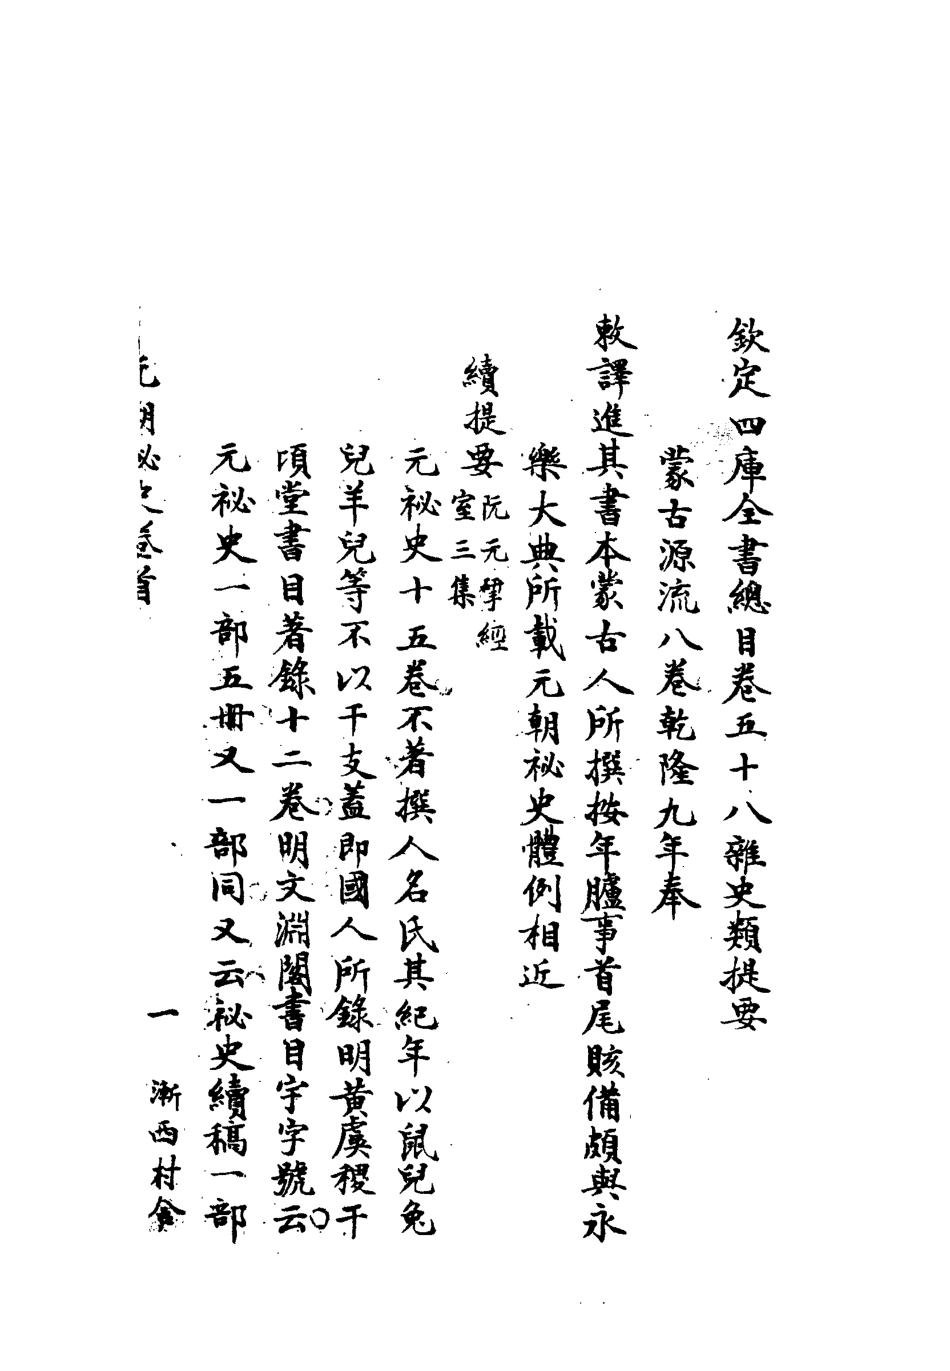 欽定四庫全書總目卷五十八雜史類提要
蒙古源流八卷乾隆九年奉
敕譯進其書本蒙古人所撰按年臚事首尾賅備頗與永
樂大典所載元朝祕史體例相近
續提要阮元揅經室三集
元祕史十五卷不著撰人名氏其紀年以鼠兒兔
兒羊兒等不以干支蓋即國人所錄明黃虞稷千
頃堂書目著錄十二卷明文淵閣書目宇字號云
元祕史一部五冊又一部同又云祕史續稿一部
元朝祕史卷首
一
漸西村舍